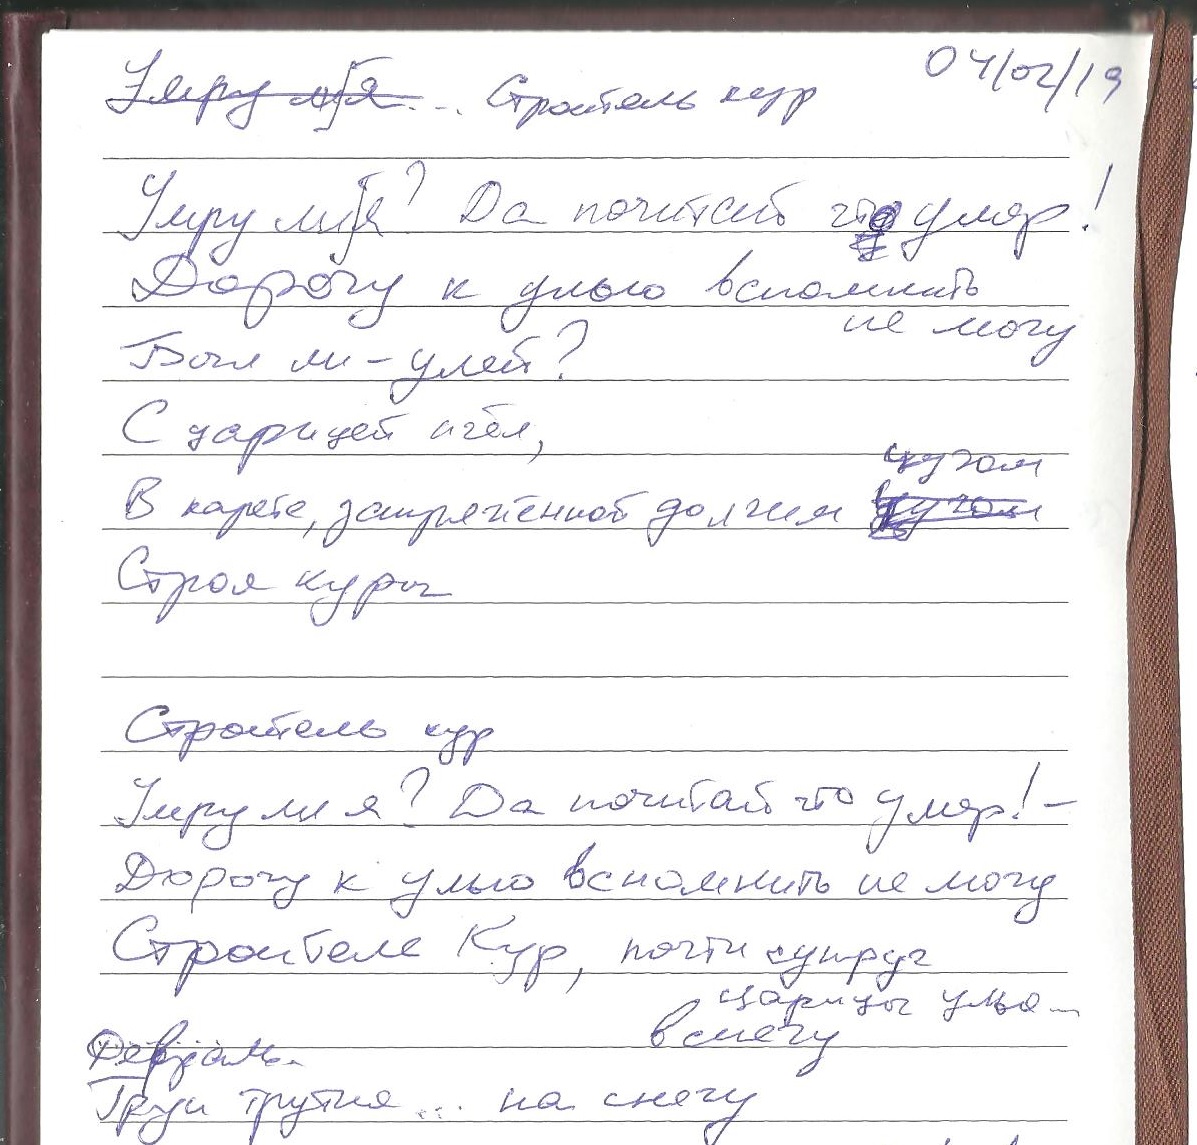 Умру ли я... Строитель кур 04/02/19
Умру ли я? Да почитай что умер!
Дорогу к улью вспомнить
не могу
Был ли - улей?
С царицей пчёл,
цугом
В карете, запряжённой долгим цугом
Строя куры
Строитель кур
Умру ли я? Да почитай что умер! -
Дорогу к улью вспомнить не могу
Строителе Кур, почти супруг
царицы улья...
в снегу
Февраль.
Труп трутня ... на снегу